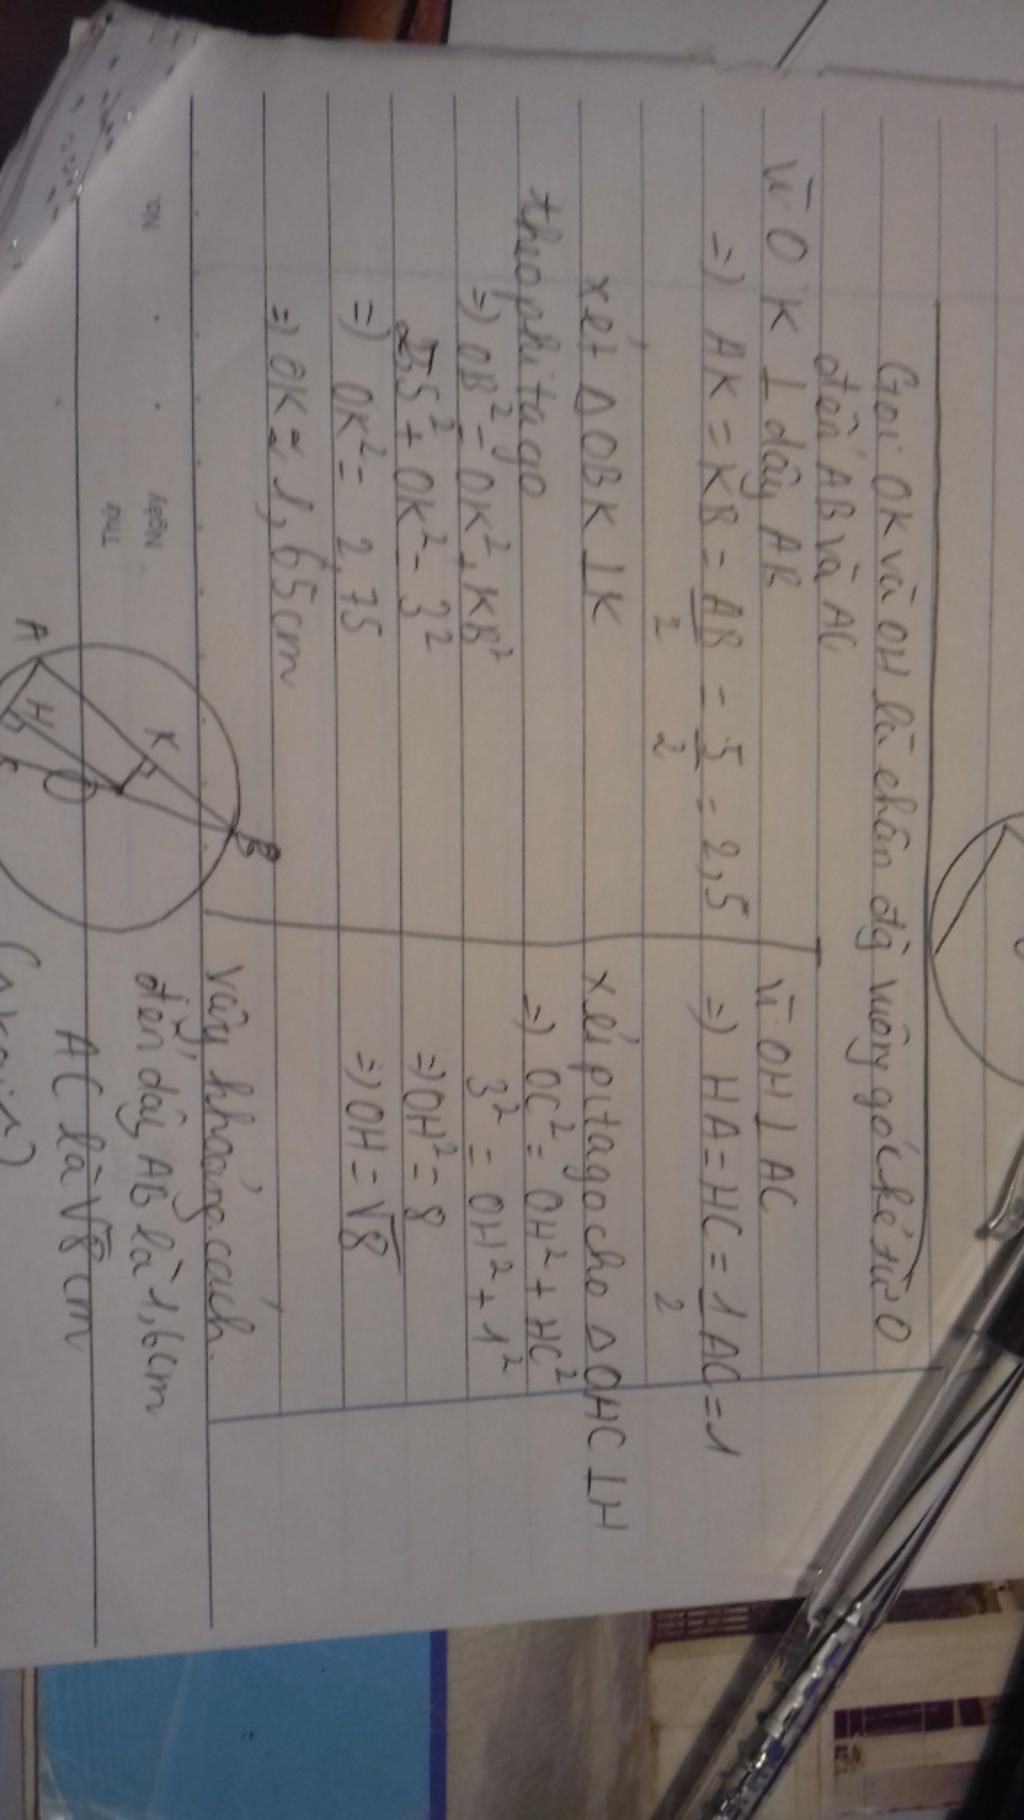 Gọi OK và OH là chân đg vuông góc kẻ từ O
đến AB và AC
Vì OK ⊥ dây AB
=) AK = KB = AB/2 = 5/2 = 2,5
xét Δ OBK ⊥ K
theo phi ta go
=) OB² = OK² + KB²
2,5² + OK² = 3²
=) OK² = 2,75
=) OK ≈ 1,65cm
Vì OH ⊥ AC
=) HA = HC = 1/2 AC = 1
xét pitago cho Δ OHC ⊥ H
=) OC² = OH² + HC²
3² = OH² + 1²
=) OH² = 8
=) OH = √8
Vậy khoảng cách
đến dây AB là 1,6cm
AC là √8 cm
A
K
B
H
O
No.
Ngày
Thứ